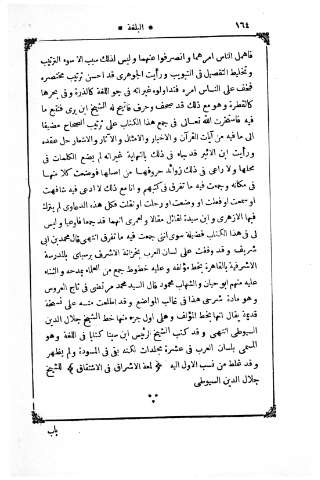 ١٦٤ * البلغة *
فاهمل الناس امرهما وانصرفوا عنهما وليس لذلك سبب الا سوء الترتيب
وتخليط التفصيل فى التبويب ورأيت الجوهرى قد احسن ترتيب مختصره
فخف على الناس امره فتداولوه غير انه فى جو اللغة كالذرة وفى بحرها
كالقطرة وهو مع ذلك قد صحف وحرف فاتيح له الشيخ ابن برى فتتبع ما
فيه فاستخرت الله تعالى فى جمع هذا الكتاب على ترتيب الصحاح مضيفا
الى ما فيه من آيات القرآن والاخبار والامثال والآثار والاشعار حل عقده
ورأيت ابن الاثير قد جاء فى ذلك بالنهاية غير انه لم يضع الكلمات فى
محلها ولا راعى فى ذلك زوائد حروفها من اصلها فوضعت كلا منها
فى مكانه وجمعت فيه ما تفرق فى كتبهم وانا مع ذلك لا ادعى فيه شافهت
او سمعت او فعلت او وضعت او رحلت او نقلت فكل هذه الدعاوى لم يترك
فيها الازهرى و ابن سيدة لقائل مقالا ولعمرى انهما قد جمعا فاوعيا وليس
لى فى هذا الكتاب فضيلة سوى انى جمعت فيه ما تفرق انتهى قال محمد بن ابى
شريف و قد وقفت على لسان العرب بخزانة الاشرف برسباى بالمدرسة
الاشرفية بالقاهرة بخط مؤلفه و عليه خطوط جمع من العلماء بمدحه و الثناء
عليه منهم ابو حيان و الشهاب محمود قال السيد محمد مرتضى فى تاج العروس
و هو مادة شرحى هذا فى غالب المواضع و قد اطلعت منه على نسخة
قديمة يقال انها بخط المؤلف و على اول جزء منها خط الشيخ جلال الدين
السيوطى انتهى و قد كتب الشيخ الرئيس ابن سينا كتابا فى اللغة و هو
المسمى بلسان العرب فى عشرة مجلدات لكنه بقى فى المسودة و لم يظهر
و قد غلط من نسب الاول اليه ﴿ لمعة الاشراق فى الاشتقاق ﴾ للشيخ
جلال الدين السيوطى
باب